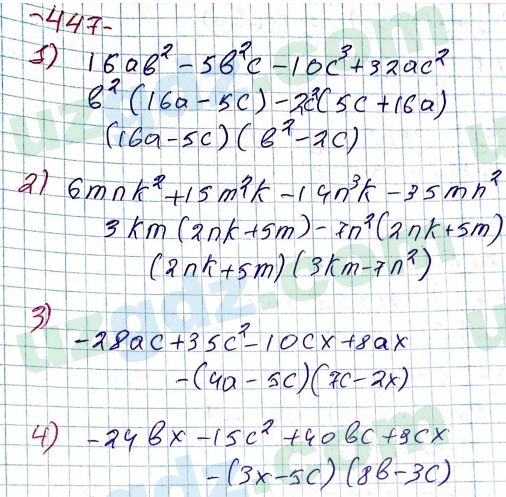 -447-
1) 16ab² - 5b²c - 10c³ + 32ac²
b²(16a - 5c) - 2c²(5c + 16a)
(16a - 5c)(b² - 2c)
2) 6mnk² + 15m²k - 14n³k - 35mn²
3km(2nk + 5m) - 7n²(2nk + 5m)
(2nk + 5m)(3km - 7n²)
3)
-28ac + 35c² - 10cx + 8ax
-(4a - 5c)(7c - 2x)
4) -24bx - 15c² + 40bc + 9cx
-(3x - 5c)(8b - 3c)